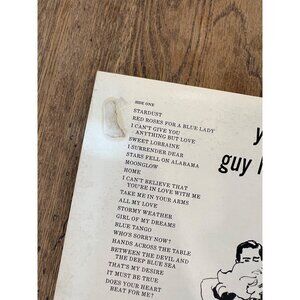 SIDE ONE
STARDUST
RED ROSES FOR A BLUE LADY
I CAN'T GIVE YOU
ANYTHING BUT LOVE
SWEET LORRAINE
I SURRENDER DEAR
STARS FELL ON ALABAMA
MOONGLOW
HOME
I CAN'T BELIEVE THAT
YOU'RE IN LOVE WITH ME
TAKE ME IN YOUR ARMS
ALL MY LOVE
STORMY WEATHER
GIRL OF MY DREAMS
BLUE TANGO
WHO'S SORRY NOW?
HANDS ACROSS THE TABLE
BETWEEN THE DEVIL AND
THE DEEP BLUE SEA
THAT'S MY DESIRE
IT MUST BE TRUE
DOES YOUR HEART
BEAT FOR ME?
y
guy